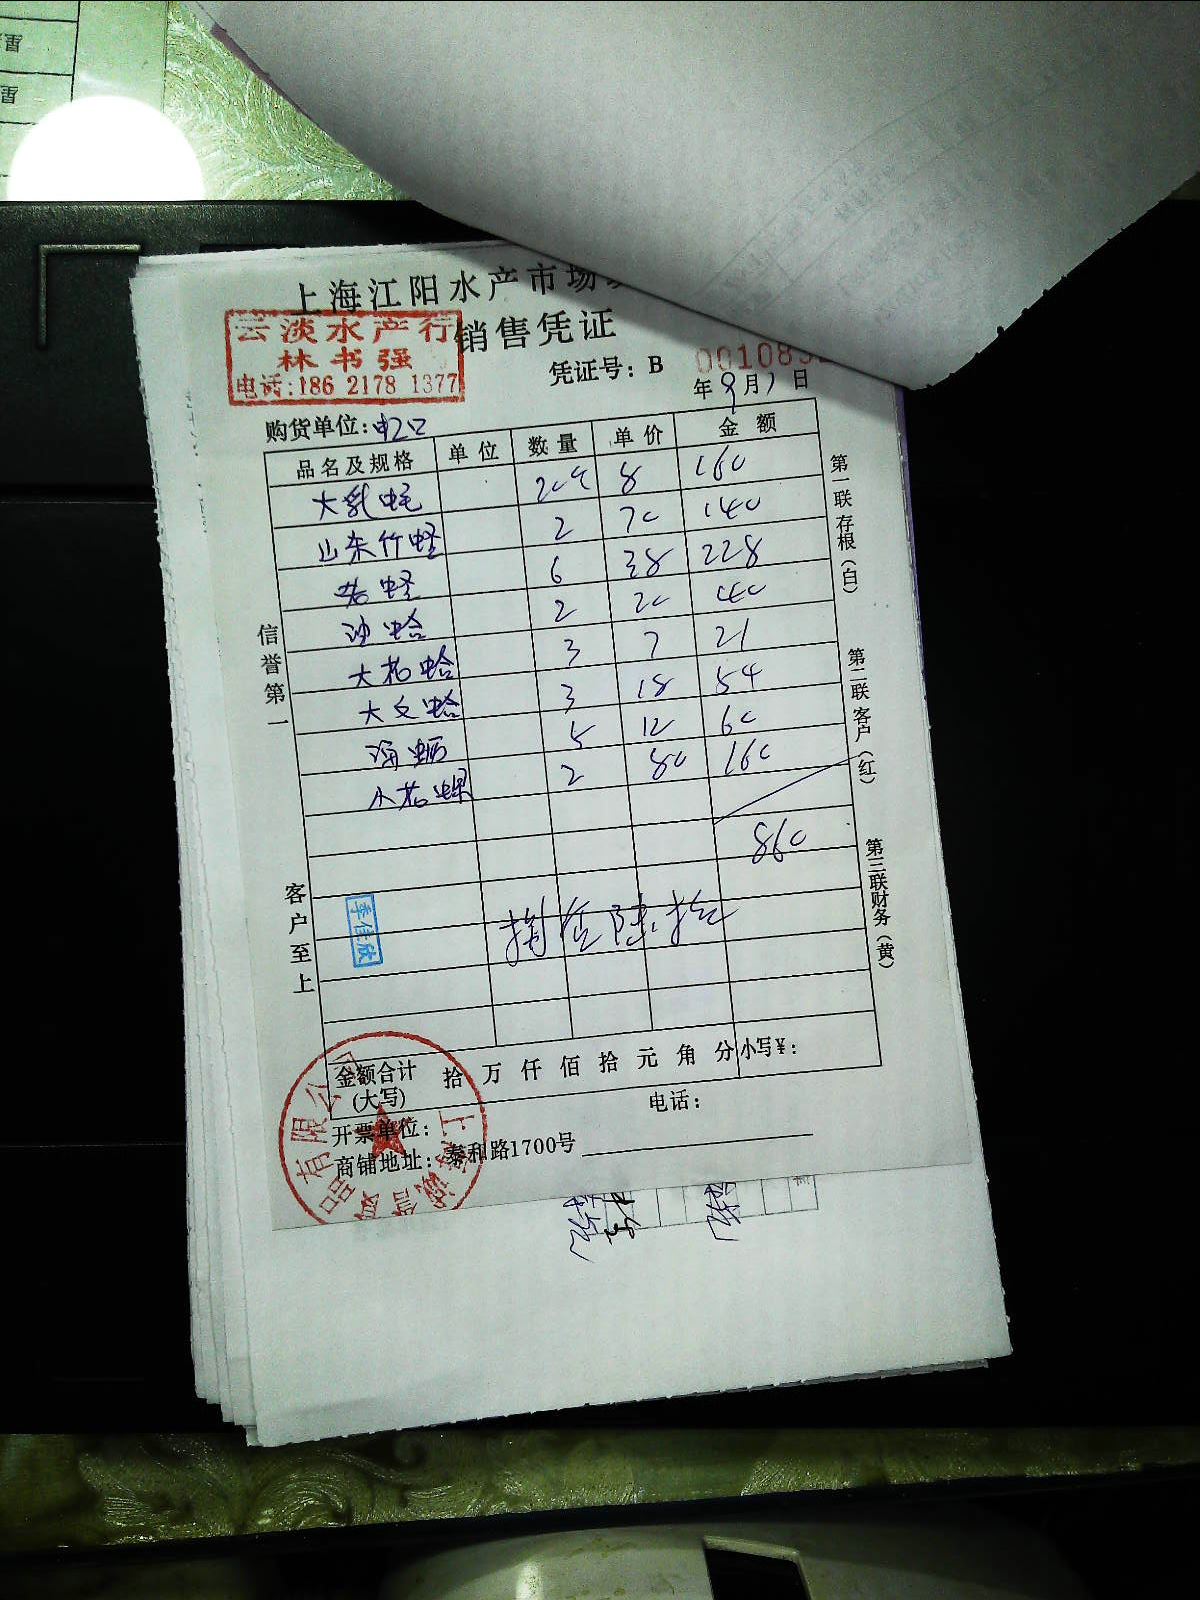 上海江阳水产市场
销售凭证
云淡水产行
林书强
电话:186 2178 1377
凭证号：B 001083
年 9月7日
购货单位:
品名及规格 单位 数量 单价 金额
大乳蚝 20个 8 160
山东竹蛏 2 70 140
花蛏 6 38 228
沙蛤 2 20 40
大花蛤 3 7 21
大文蛤 3 18 54
海蛎 5 12 60
小花螺 2 80 160
860
捌佰陆拾元
李佳欣
信誉第一
客户至上
第一联存根（白）
第二联客户（红）
第三联财务（黄）
金额合计
(大写)
拾 万 仟 佰 拾 元 角 分 小写¥：
开票单位：
电话：
商铺地址：泰和路1700号
上海诚
品有限公司